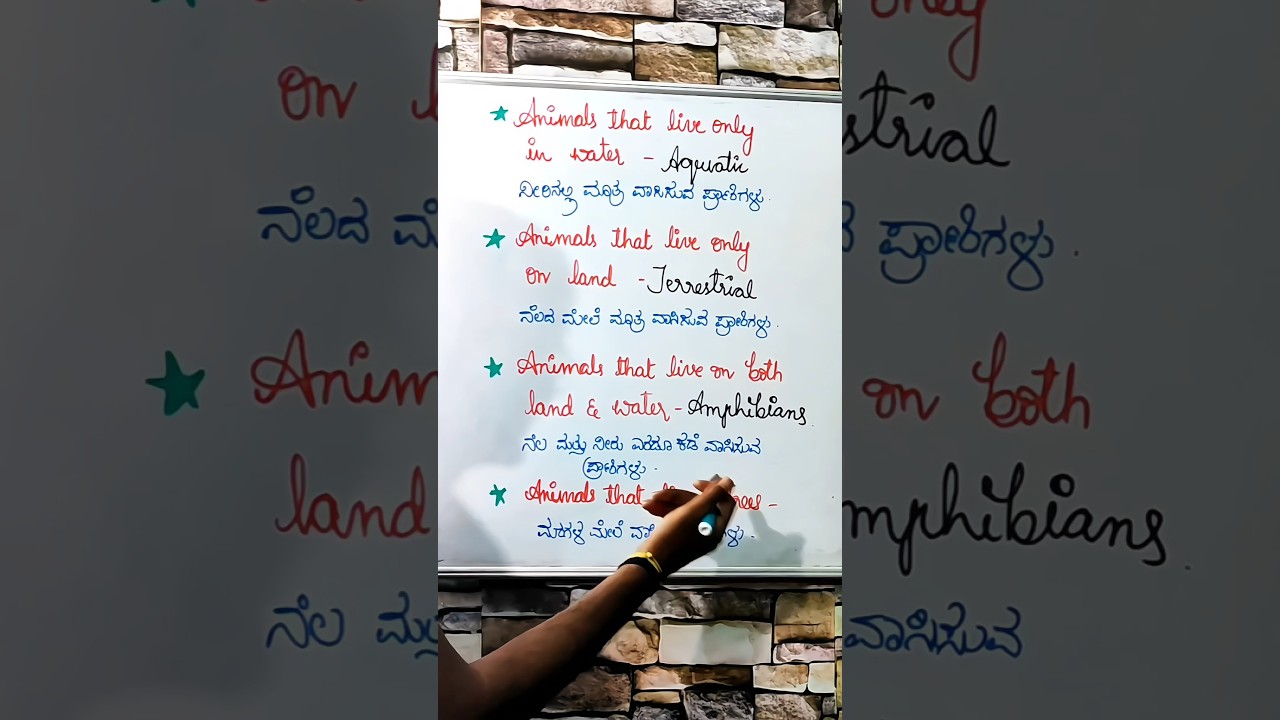 ★ Animals that live only
in water - Aquatic
ನೀರಿನಲ್ಲಿ ಮಾತ್ರ ವಾಸಿಸುವ ಪ್ರಾಣಿಗಳು.
★ Animals that live only
on land - Terrestrial
ನೆಲದ ಮೇಲೆ ಮಾತ್ರ ವಾಸಿಸುವ ಪ್ರಾಣಿಗಳು.
★ Animals that live on both
land & water - Amphibians.
ನೆಲ ಮತ್ತು ನೀರು ಎರಡೂ ಕಡೆ ವಾಸಿಸುವ
ಪ್ರಾಣಿಗಳು.
★ Animals that -
ಮರಗಳ ಮೇಲೆ